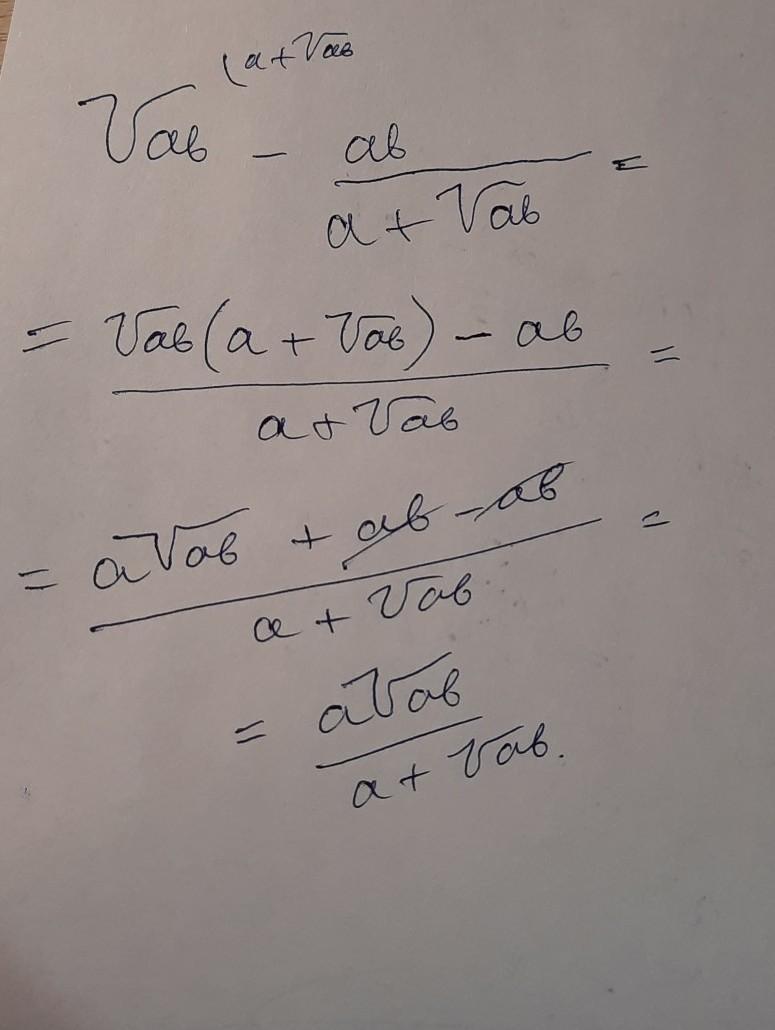 (a+√ab
√ab - ab/(a+√ab) =
= (√ab(a+√ab) - ab)/(a+√ab) =
= (a√ab + ab - ab)/(a+√ab) =
= a√ab/(a+√ab).